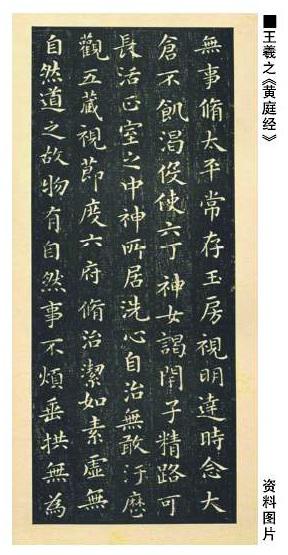 ■王羲之《黄庭经》
资料图片
無事脩太平常存玉房視明達時念大
倉不飢渴伇使六丁神女謁閇子精路可
長活正室之中神所居洗心自治無敢汙歷
觀五藏視節度六府脩治潔如素虛無
自然道之故物有自然事不煩垂拱無為